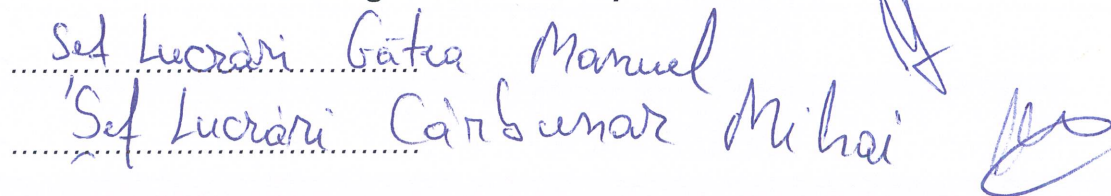 Șef Lucrări Gâtea Manuel
Șef Lucrări Cărbunar Mihai